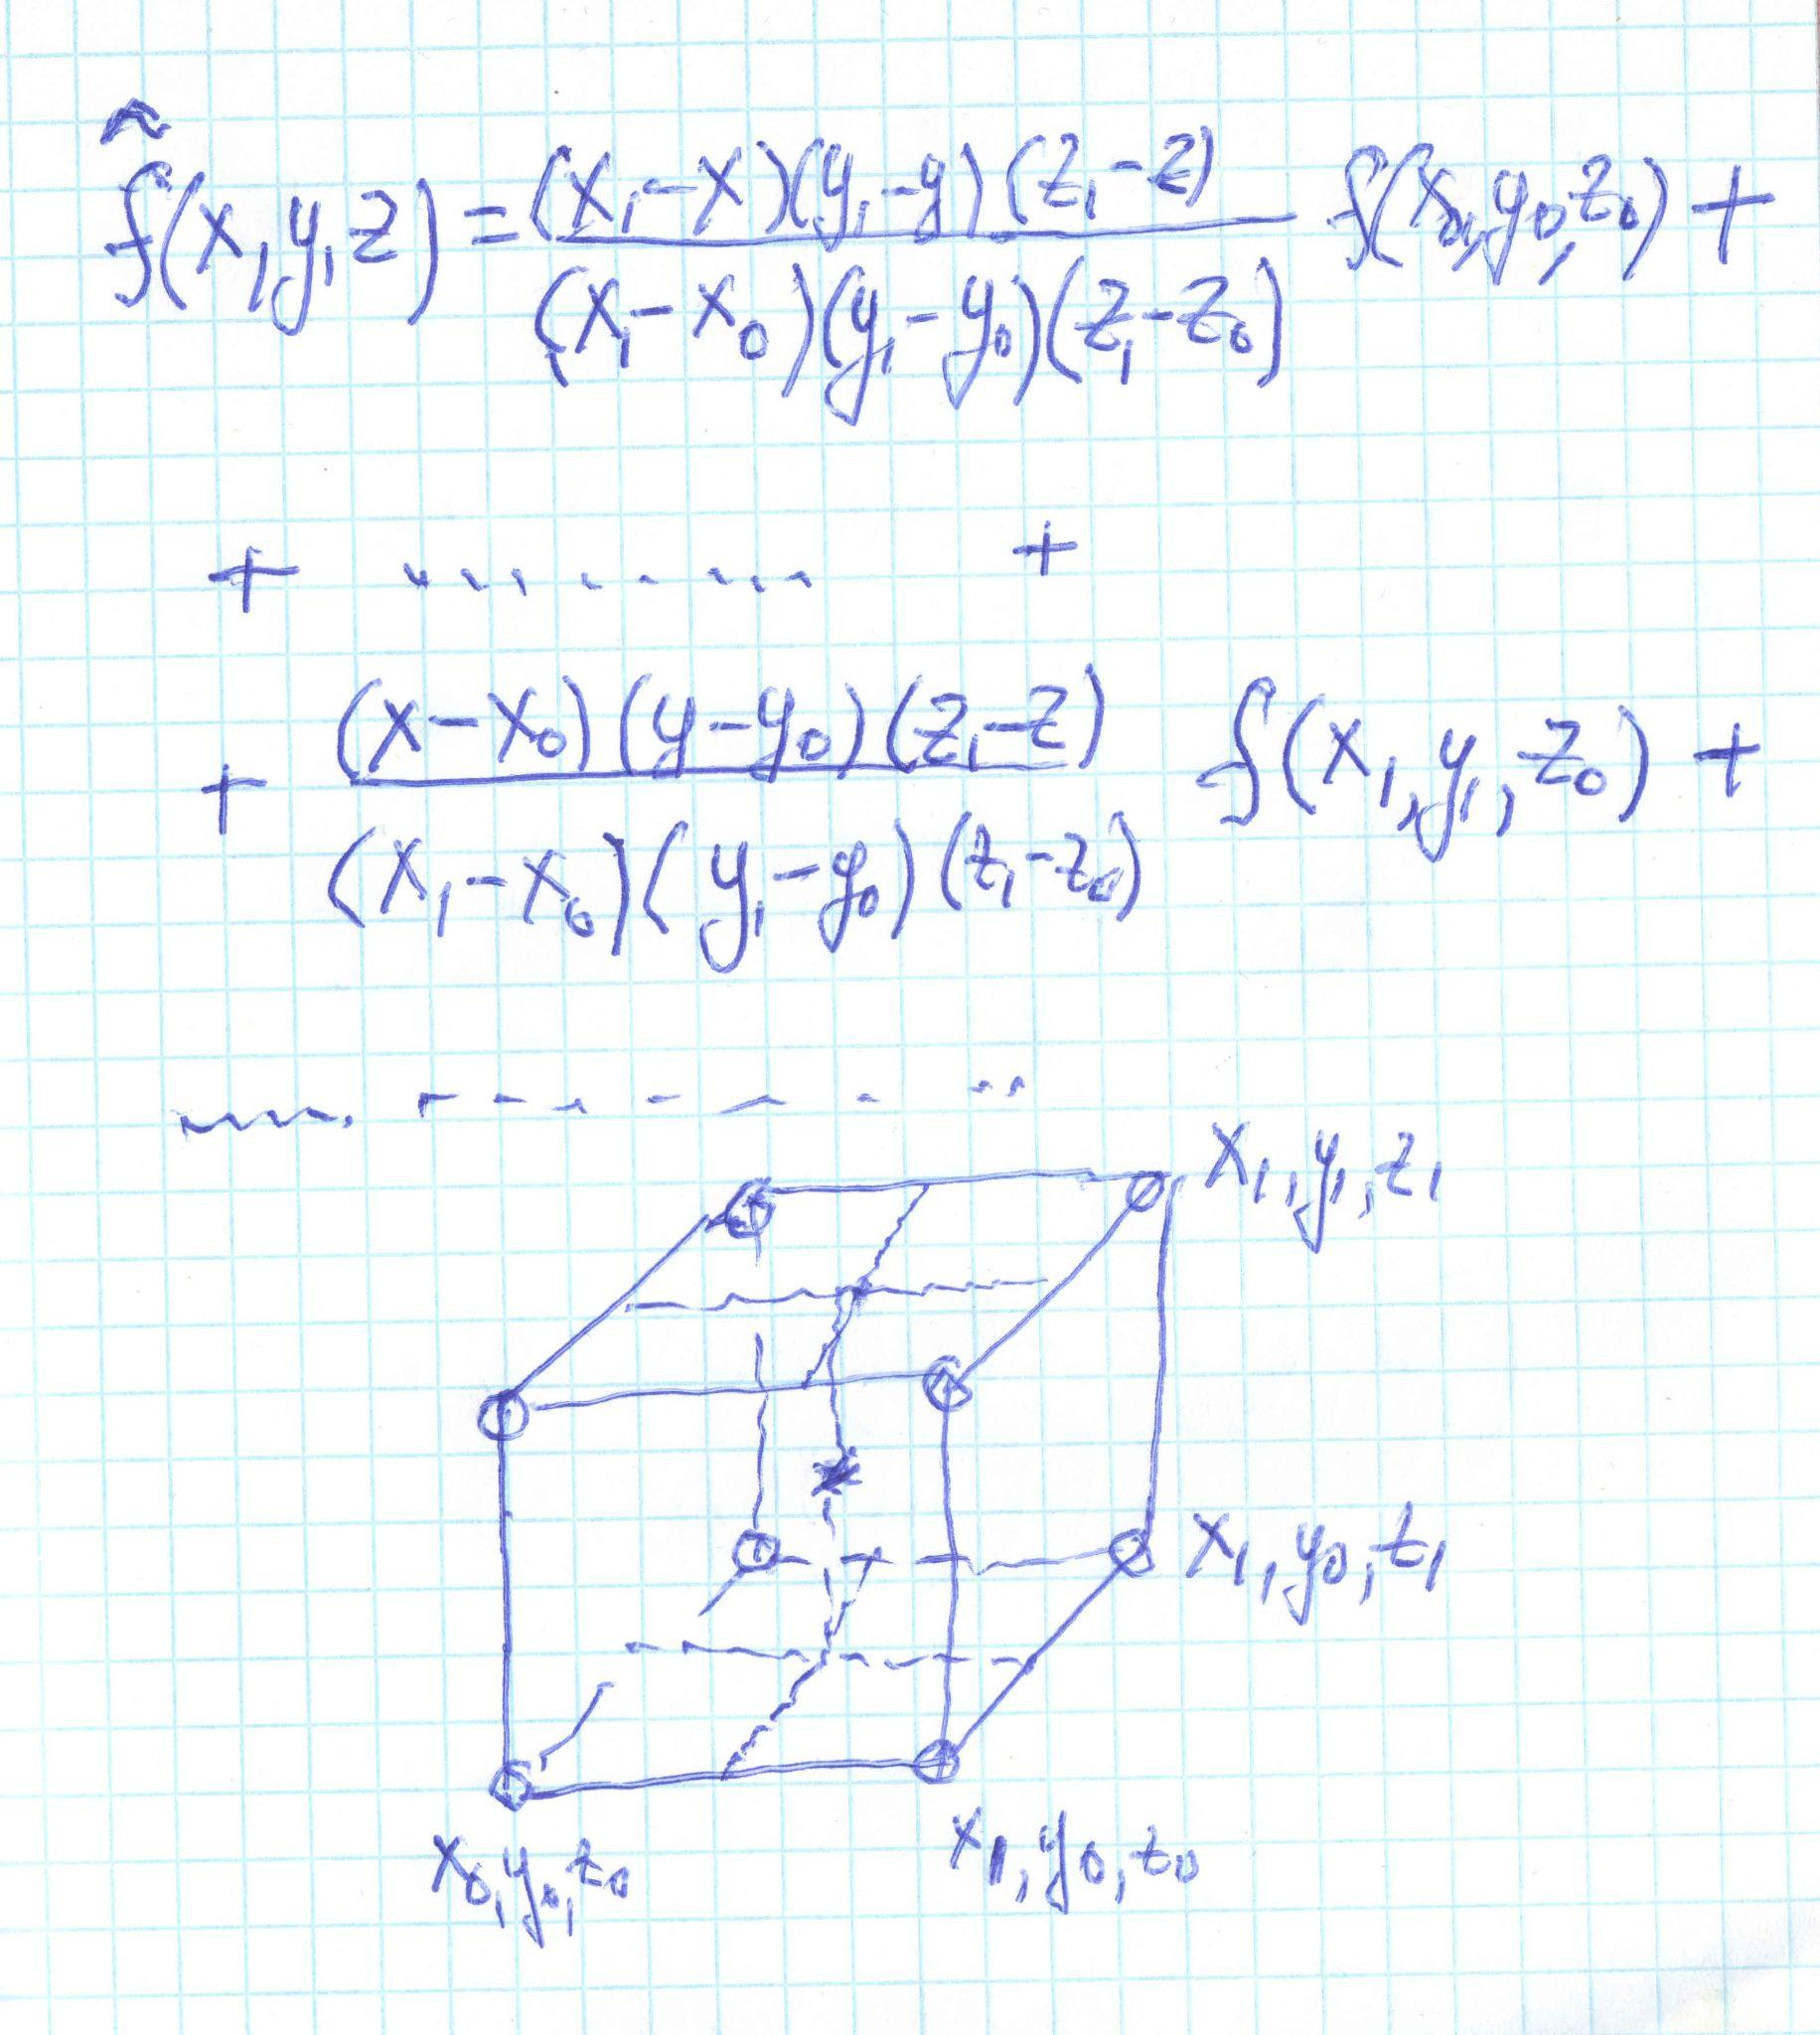 f̃(x,y,z) = (x₁-x)(y₁-y)(z₁-z) / (x₁-x₀)(y₁-y₀)(z₁-z₀) f(x₀,y₀,z₀) +
+ ........ +
+ (x-x₀)(y-y₀)(z₁-z) / (x₁-x₀)(y₁-y₀)(z₁-z₀) f(x₁,y₁,z₀) +
..............
x₁,y₁,z₁
x₁,y₀,z₁
x₀,y₀,z₀
x₁,y₀,z₀